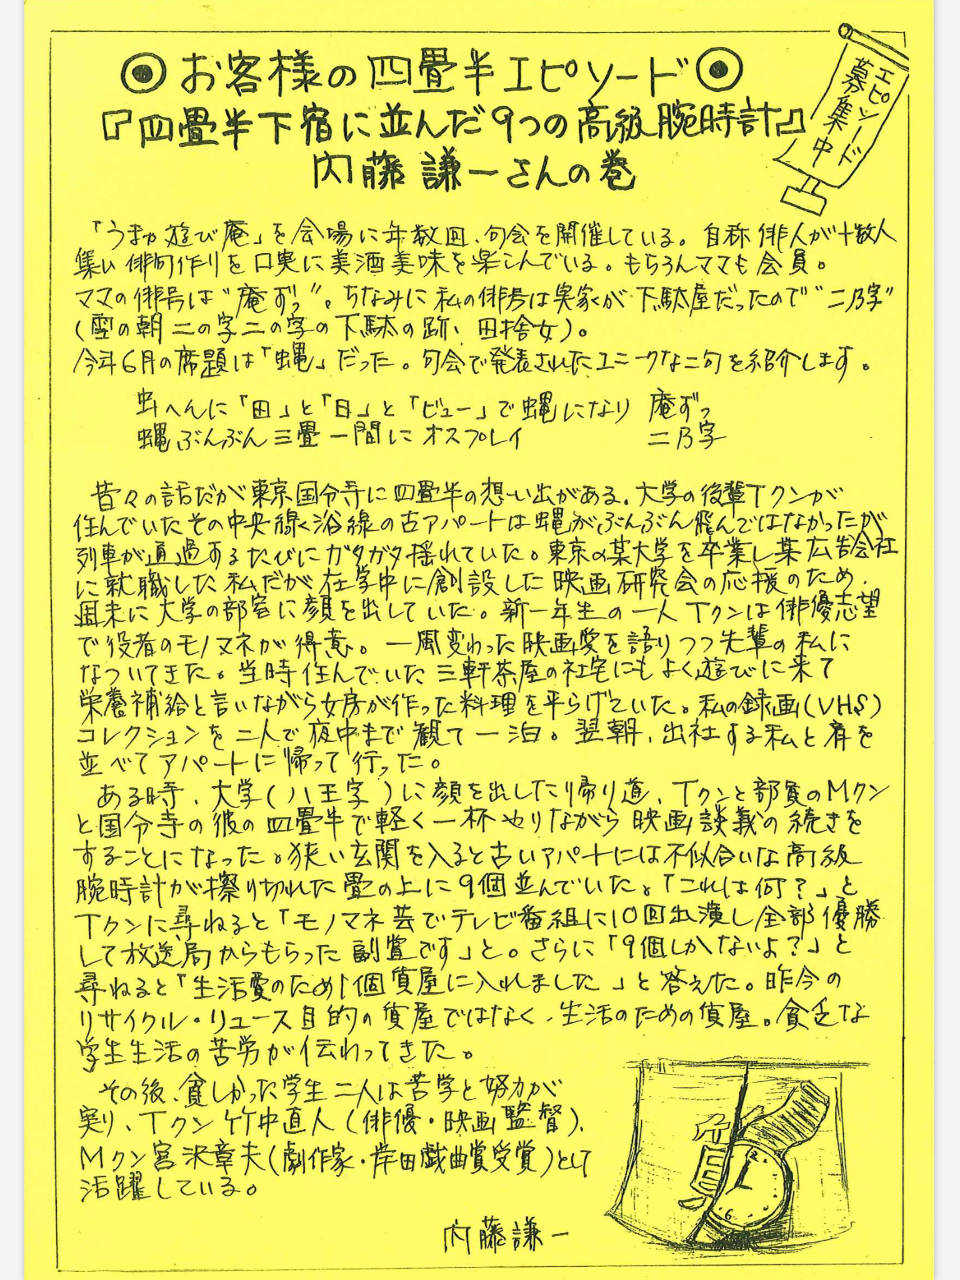 ◉お客様の四畳半エピソード◉
エピソード
募集中
『四畳半下宿に並んだ9つの高級腕時計』
内藤謙一さんの巻
「うまや遊び庵」を会場に年数回、句会を開催している。自称俳人が十数人
集い俳句作りを口実に美酒美味を楽しんでいる。もちろんママも会員。
ママの俳号は“庵ずっ”。ちなみに私の俳号は実家が下駄屋だったので“二乃字”
(雪の朝二の字二の字の下駄の跡、田捨女)。
今年6月の席題は「蝿」だった。句会で発表されたユニークな二句を紹介します。
虫へんに「田」と「日」と「ビュー」で蝿になり 庵ずっ
蝿ぶんぶん三畳一間にオスプレイ 二乃字
昔々の話だが東京国分寺に四畳半の想い出がある。大学の後輩Tクンが
住んでいたその中央線く沿線の古アパートは蝿がぶんぶん飛んではなかったが
列車が通過するたびにガタガタ揺れていた。東京の某大学を卒業し某広告会社
に就職した私だが在学中に創設した映画研究会の応援のため、
週末に大学の部室に顔を出していた。新一年生の一人Tクンは俳優志望
で役者のモノマネが得意。一風変わった映画愛を語りつつ先輩の私に
なついてきた。当時住んでいた三軒茶屋の社宅にもよく遊びに来て
栄養補給と言いながら女房が作った料理を平らげていた。私の録画(VHS)
コレクションを二人で夜中まで観て一泊。翌朝、出社する私と肩を
並べてアパートに帰って行った。
ある時、大学(八王子)に顔を出したり帰り道、Tクンと部員のMクン
と国分寺の彼の四畳半で軽く一杯やりながら映画談義の続きを
することになった。狭い玄関を入ると古いアパートには不似合いな高級
腕時計が擦り切れた畳の上に9個並んでいた。「これは何?」と
Tクンに尋ねると「モノマネ芸でテレビ番組に10回出演し全部優勝
して放送局からもらった副賞です」と。さらに「9個しかないよ?」と
尋ねると「生活費のため1個質屋に入れました」と答えた。昨今の
リサイクル・リユース目的の質屋ではなく、生活のための質屋。貧乏な
学生生活の苦労が伝わってきた。
その後、貧しかった学生二人は苦学と努力が
実り、Tクン竹中直人(俳優・映画監督)、
Mクン宮沢章夫(劇作家・岸田戯曲賞受賞)として
活躍している。
内藤謙一